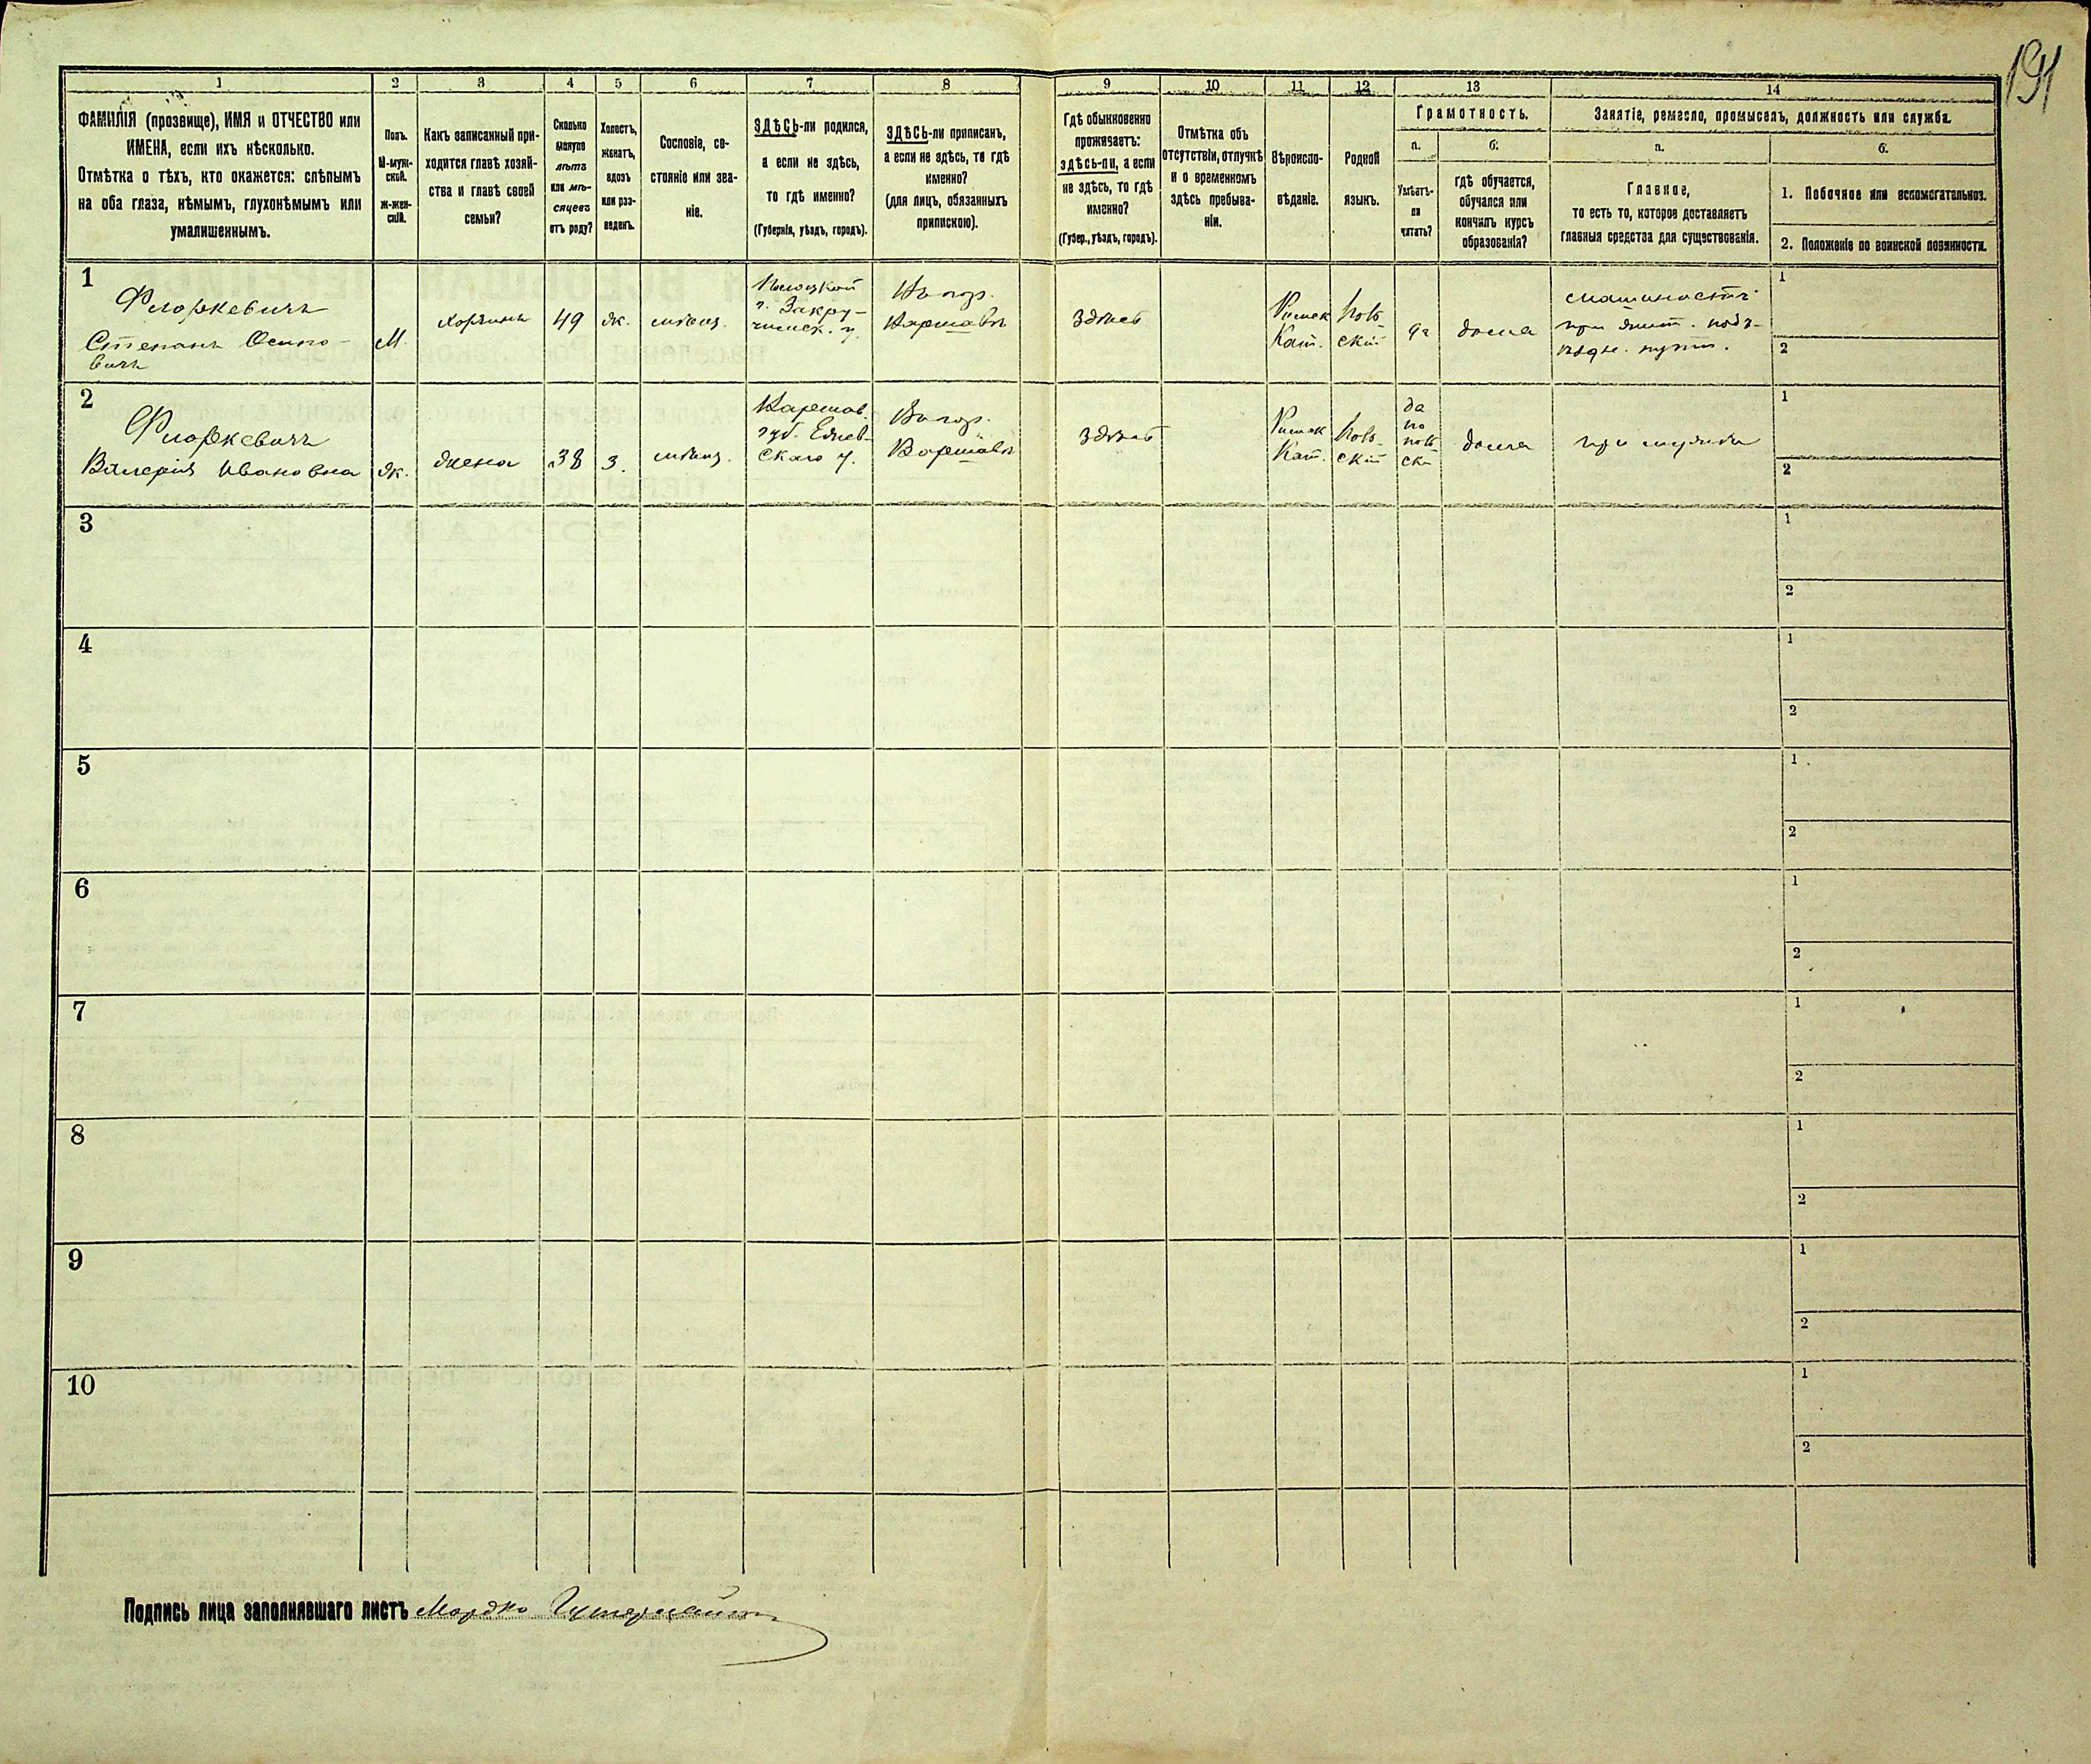 191
1
2
3
4
5
6
7
8
9
10
11
12
13
14
ФАМИЛІЯ (прозвище), ИМЯ и ОТЧЕСТВО или
ИМЕНА, если ихъ нѣсколько.
Отмѣтка о тѣхъ, кто окажется: слѣпымъ
на оба глаза, нѣмымъ, глухонѣмымъ или
умалишеннымъ.
Полъ.
М-муж-
ской.
Ж-жен-
скій.
Какъ записанный при-
ходится главѣ хозяй-
ства и главѣ своей
семьи?
Сколько
минуло
лѣтъ
или мѣ-
сяцевъ
отъ роду?
Холостъ,
женатъ,
вдовъ
или раз-
веденъ.
Сословіе, со-
стояніе или зва-
ніе.
ЗДѢСЬ-ли родился,
а если не здѣсь,
то гдѣ именно?
(Губернія, уѣздъ, городъ).
ЗДѢСЬ-ли приписанъ,
а если не здѣсь, то гдѣ
именно?
(для лицъ, обязанныхъ
припискою).
Гдѣ обыкновенно
проживаетъ:
здѣсь-ли, а если
не здѣсь, то гдѣ
именно?
(Губер., уѣздъ, городъ).
Отмѣтка объ
отсутствіи, отлучкѣ
и о временномъ
здѣсь пребыва-
ніи.
Вѣроиспо-
вѣданіе.
Родной
языкъ.
Грамотность.
а.
Умѣетъ-
ли
читать?
б.
гдѣ обучается,
обучался или
кончилъ курсъ
образованія?
Занятіе, ремесло, промыселъ, должность или служба.
а.
Главное,
то есть то, которое доставляетъ
главныя средства для существованія.
б.
1. Побочное или вспомогательное.
2. Положеніе по воинской повинности.
1
Флоркевичъ
Степанъ Осипо-
вичъ
М.
хозяинъ
49
ж.
мѣщ.
г.
Въ гор.
Варшавѣ
здѣсь
Римск
Кат.
поль
скій
да
дома
при
1
2
2
Флоркевичъ
Валерія Ивановна
ж.
жена
38
з.
мѣщ.
Варшав.
губ.
скаго у.
Въ гор.
Варшавѣ
здѣсь
Римск
Кат.
поль-
скій
да
по
поль
ски
дома
при мужѣ
1
2
3
1
2
4
1
2
5
1
2
6
1
2
7
1
2
8
1
2
9
1
2
10
1
2
Подпись лица заполнявшаго листъ Мордко